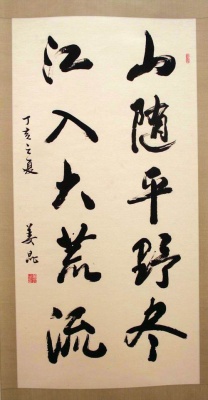 山随平野尽
江入大荒流
丁亥之夏
姜